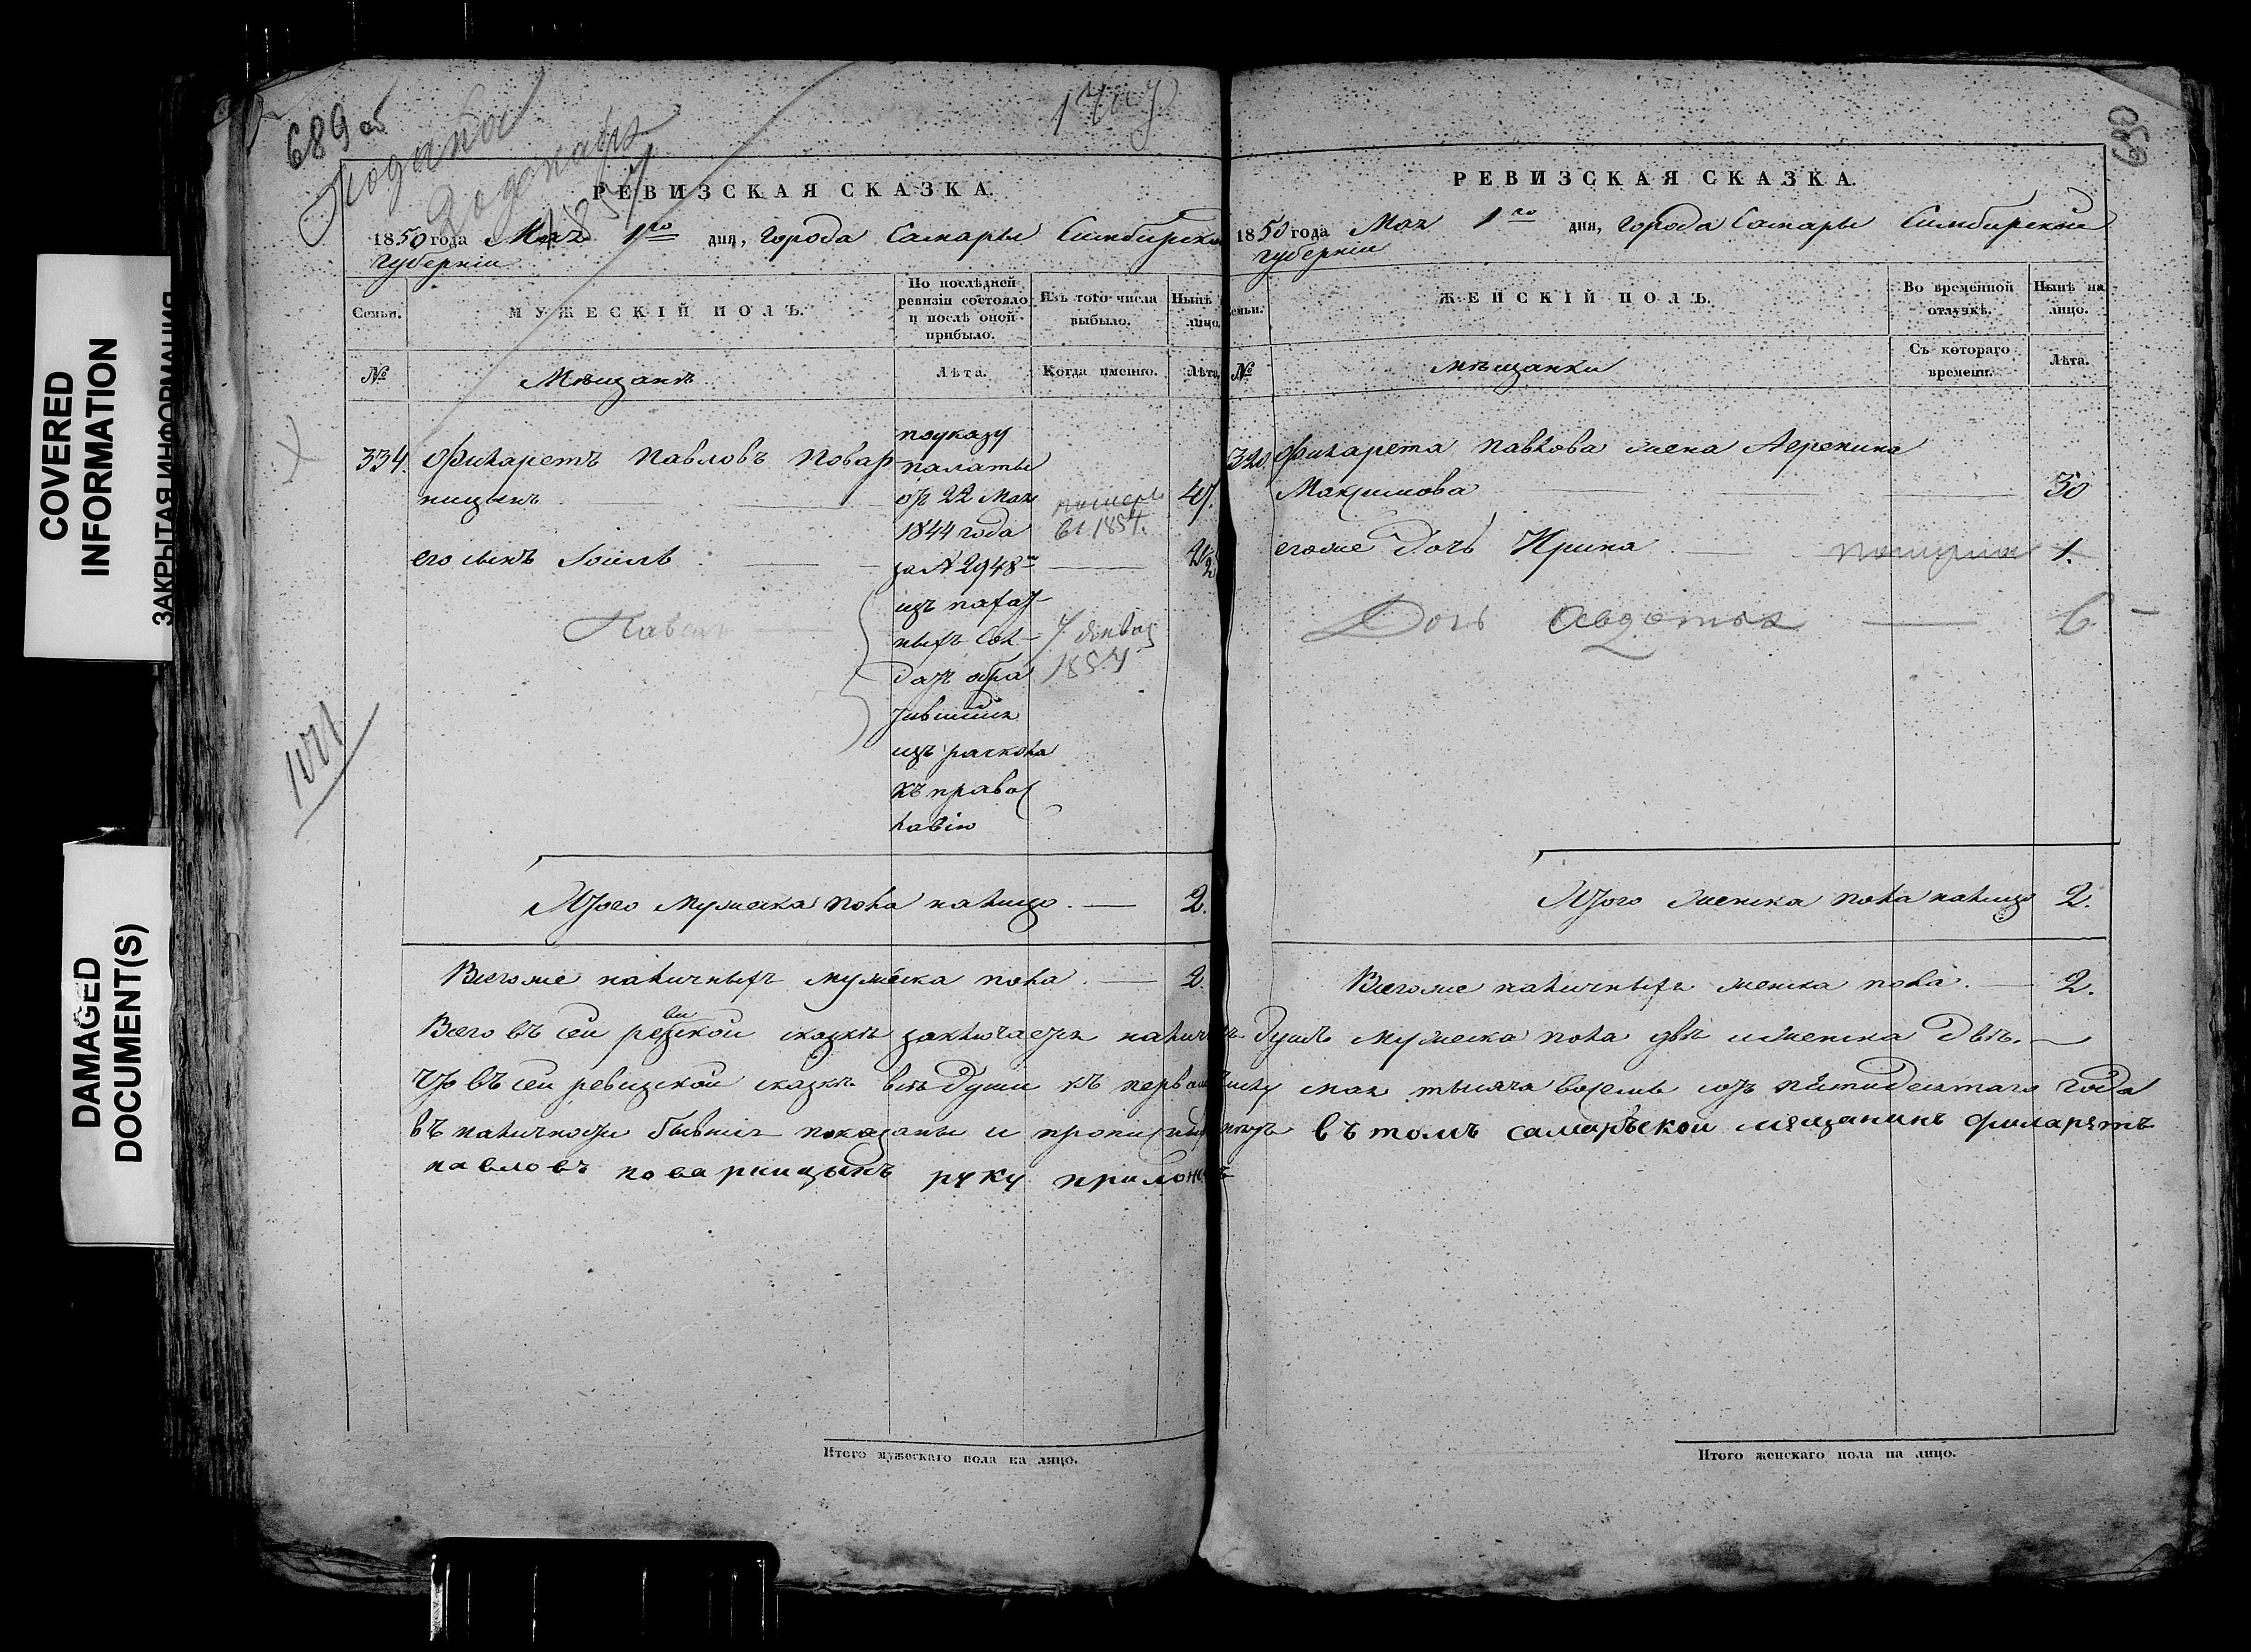 COVERED
INFORMATION
ЗАКРЫТАЯ ИНФОРМАЦИЯ
DAMAGED
DOCUMENT(S)
689 об
Подана
РЕВИЗСКАЯ СКАЗКА.
1850 года Мая 1го дня, города Самары Симбирской
губернiи
Семьи.
МУЖЕСКIЙ ПОЛЪ.
По послѣдней
ревизiи состояло
и послѣ оной
прибыло.
Изъ того числа
выбыло.
Нынѣ
лицо.
№
Мѣщанъ
Лѣта.
Когда именно.
Лѣта.
334. Филаретъ Павловъ Повар-
ницынъ
47.
его сынъ
Павелъ
по указу
палаты
отъ 22 Мая
1844 года
за № 2948м
изъ
ныхъ сол-
датъ обра
тившiйся
изъ раскола
къ правос
лавiю
въ 1854.
7 Января
Итого мужеска пола налицо. 2.
Всегоже наличныхъ мужеска пола. 2.
Итого мужескаго пола на лицо.
690
РЕВИЗСКАЯ СКАЗКА.
1850 года Мая 1го дня, города Самары Симбирской
губернiи
Семьи.
ЖЕНСКIЙ ПОЛЪ.
Во временной
отлучкѣ.
Нынѣ на
лицо.
№
мѣщанки
Съ котораго
времени.
Лѣта.
320. Филарета Павлова жена Агрепина
Макзимова 30
егоже дочь Ирина 1.
Дочь Авдотья 6
Итого женска пола налицо 2.
Всегоже наличныхъ женска пола. 2.
Всего въ сей ревизкой сказкѣ заключается налич душъ мужеска пола двѣ и женска двѣ.
что въ сей ревизской сказкѣ всѣ души къ первому числу мая тысяча восемь сотъ пятидесятаго года
въ наличности бывшiя показаны и въ томъ самарьской мещанинъ филарѣтъ
павловъ поварницынъ руку приложилъ
Итого женскаго пола на лицо.